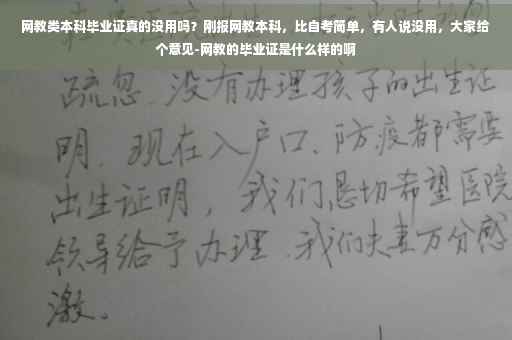 网教类本科毕业证真的没用吗？刚报网教本科，比自考简单，有人说没用，大家给
个意见-网教的毕业证是什么样的啊
疏忽.没有办理孩子的出生证
明.现在入户口、防疫都需要
出生证明，我们恳切希望医院
领导给予办理.我们夫妻万分感
激。